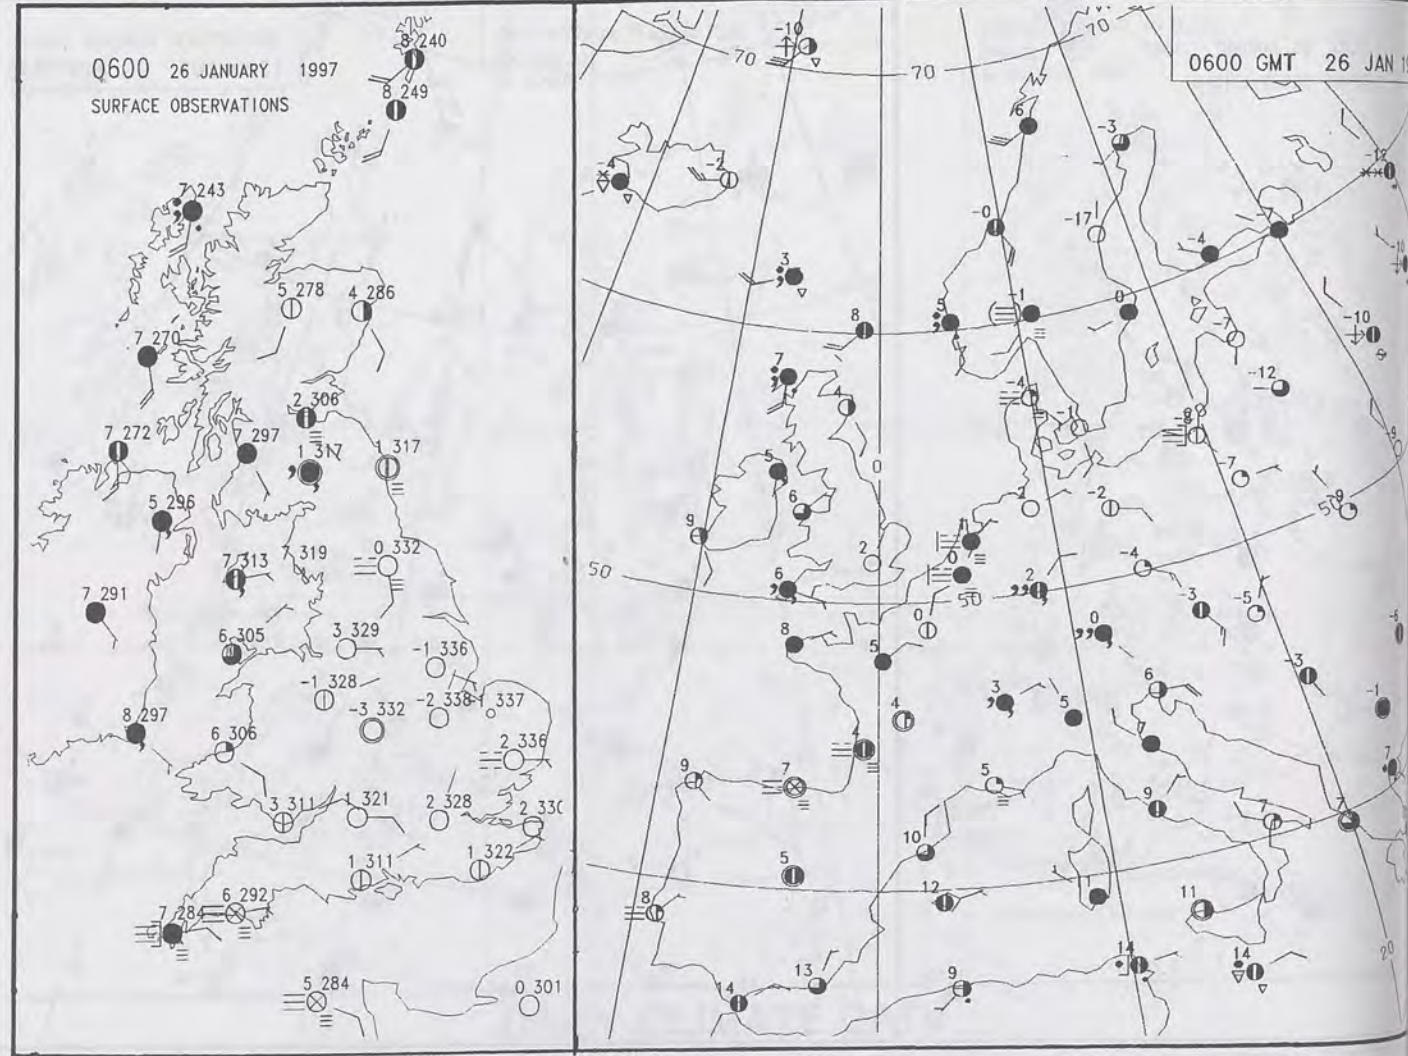 0600 26 JANUARY 1997
SURFACE OBSERVATIONS
8 240
8 249
7 243
5 278
4 286
7 270
2 306
7 272
7 297
1 317
1 317
5 296
0 332
7 313
7 319
7 291
6 305
3 329
-1 336
-1 328
-2 338
-1 337
-3 332
8 297
6 306
2 336
3 311
1 321
2 328
2 330
1 311
1 322
6 292
7 284
5 284
0 301
0600 GMT 26 JAN 19
-10
70
70
70
6
-3
-4
-2
-12
-0
-17
-4
-7
-10
3
8
5
-1
0
-7
-10
7
4
-4
-12
-1
-8
-9
5
0
6
-7
-9
50
9
2
-2
50
2
0
-4
6
50
2
-3
-5
0
0
-6
8
5
-3
6
4
3
5
-1
4
9
7
5
9
7
7
7
10
5
12
11
8
14
14
13
9
14
20